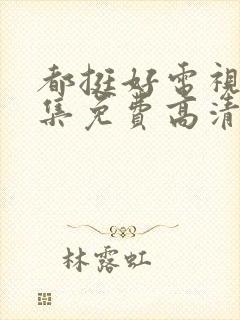 都挺好电視
集免費高清
林露虹